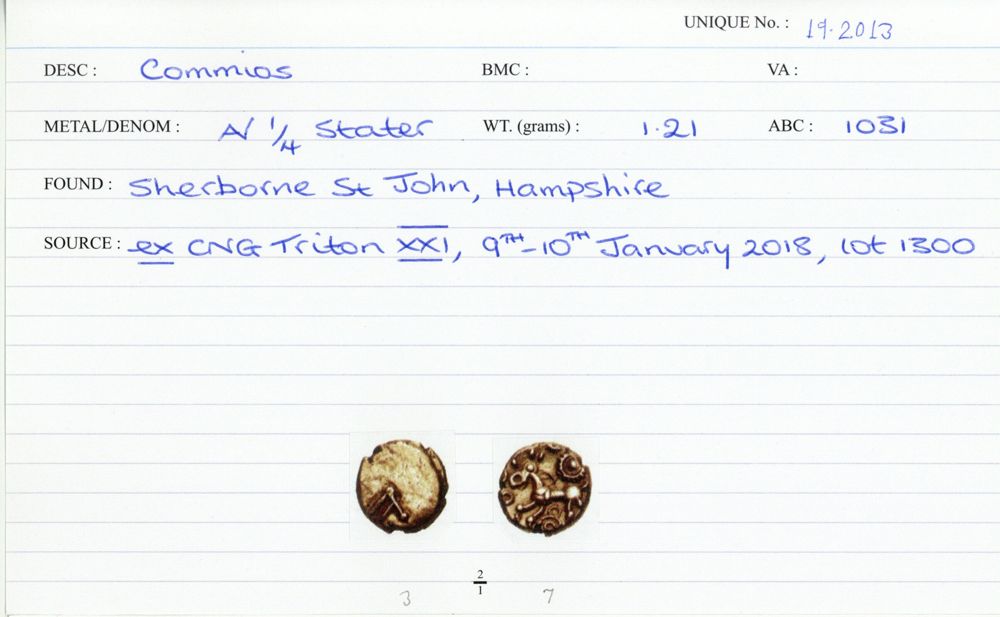 UNIQUE No. : 19.2013
DESC : Commios BMC : VA :
METAL/DENOM : A/ 1/4 Stater WT. (grams) : 1.21 ABC : 1031
FOUND : Sherborne St John, Hampshire
SOURCE : ex CNG Triton XXI, 9TH-10TH January 2018, lot 1300
2/1
3 7